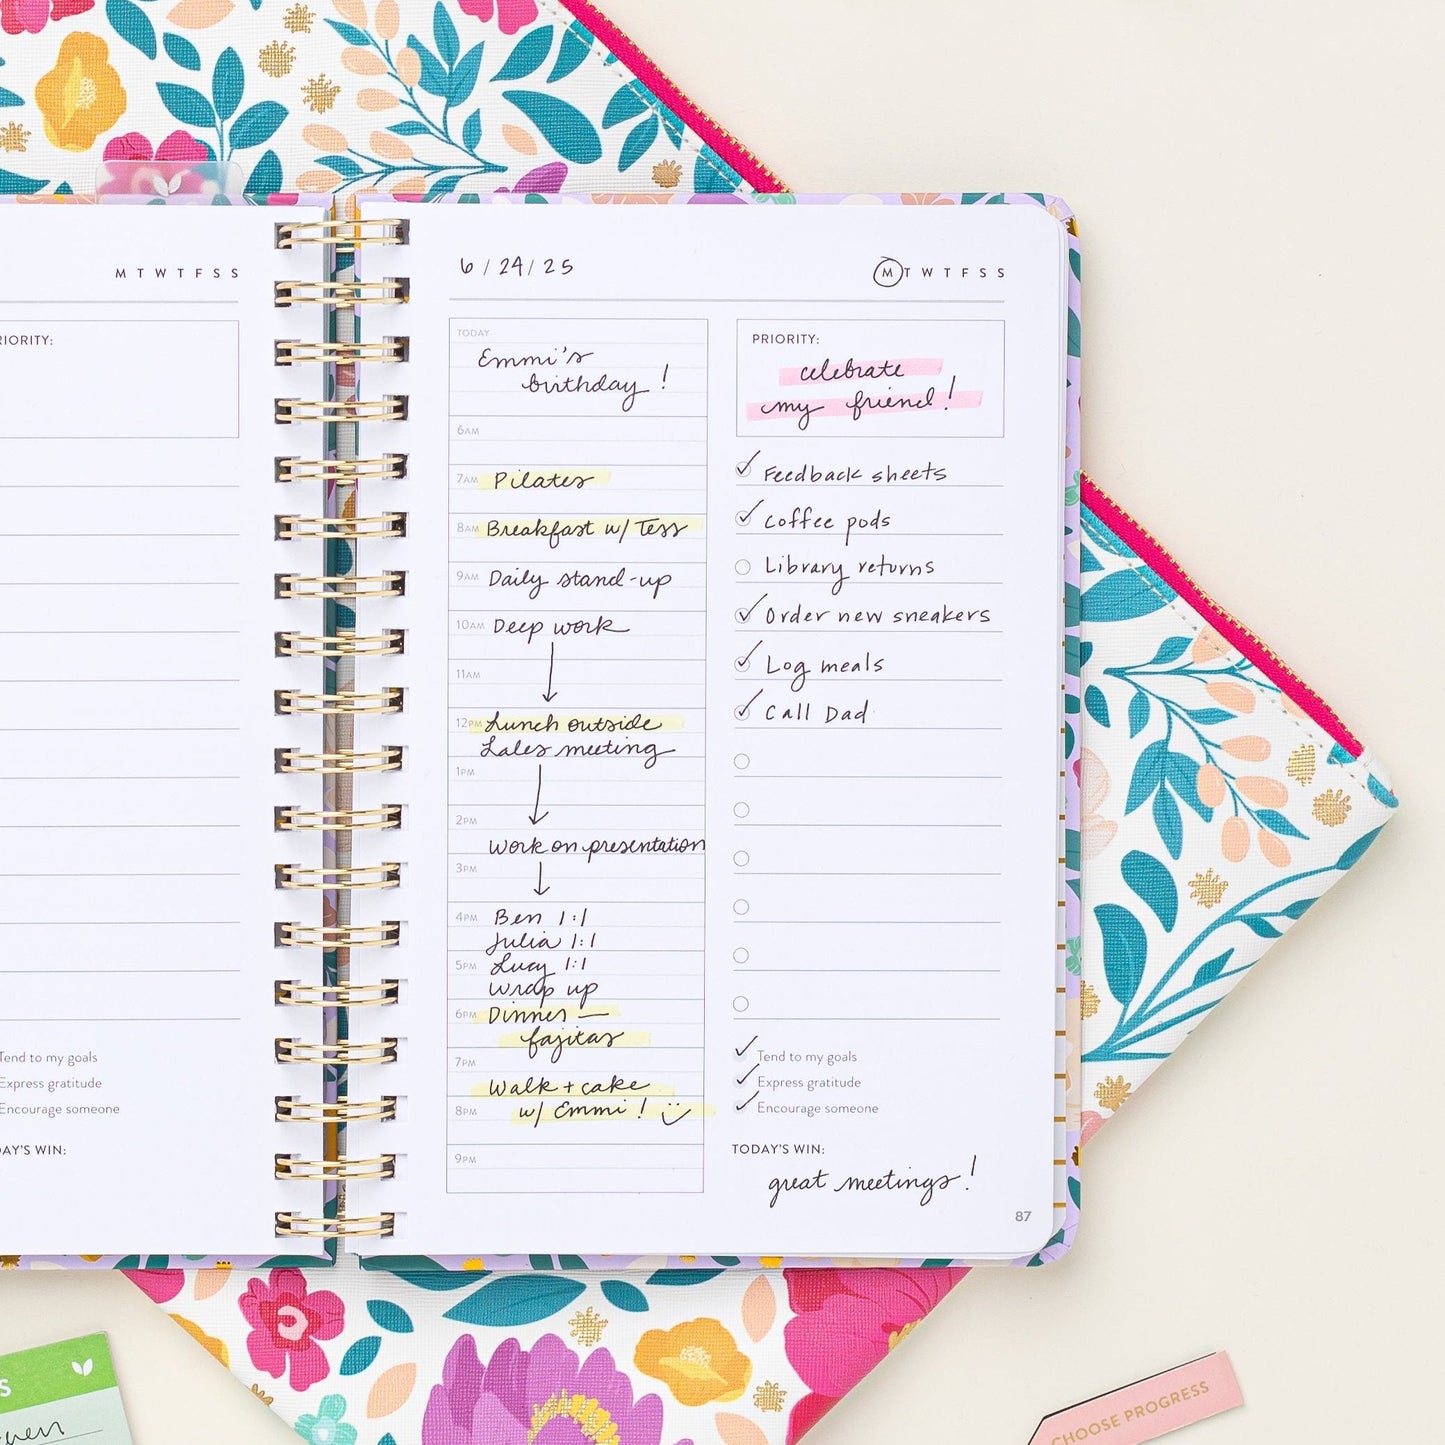 M T W T F S S
RIORITY:
Tend to my goals
Express gratitude
Encourage someone
AY'S WIN:
6/24/25
M T W T F S S
TODAY
Emmi's
birthday!
6AM
7AM Pilates
8AM Breakfast w/ Tess
9AM Daily stand-up
10AM Deep work
11AM
12PM Lunch outside
Sales meeting
1PM
2PM
Work on presentation
3PM
4PM Ben 1:1
Julia 1:1
5PM Lucy 1:1
wrap up
6PM Dinner —
fajitas
7PM
Walk + cake
8PM w/ Emmi! :)
9PM
PRIORITY:
celebrate
my friend!
Feedback sheets
Coffee pods
Library returns
Order new sneakers
Log meals
Call Dad
Tend to my goals
Express gratitude
Encourage someone
TODAY'S WIN:
great meetings!
87
S
CHOOSE PROGRESS